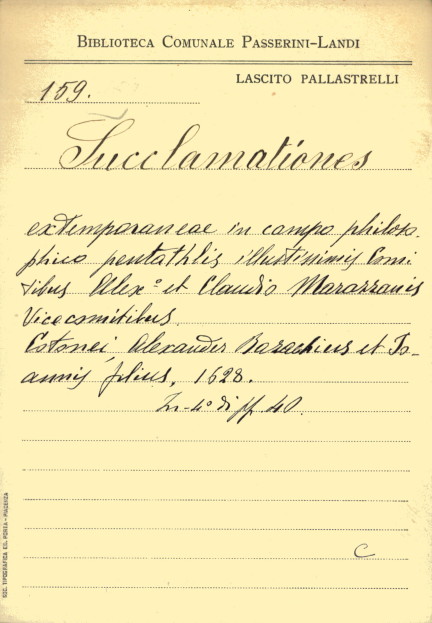 BIBLIOTECA COMUNALE PASSERINI-LANDI
LASCITO PALLASTRELLI
159.
Succlamationes
extemporaneae in campo philoso-
phico pentathlis illustissimis Comi
tibus Alex.º et Claudio Marazzanis
Vicecomitibus.
Alexander et Jo-
annis filius, 1628.
In-4º di ff. 40.
C
SOC. TIPOGRAFICA ED. PORTA - PIACENZA